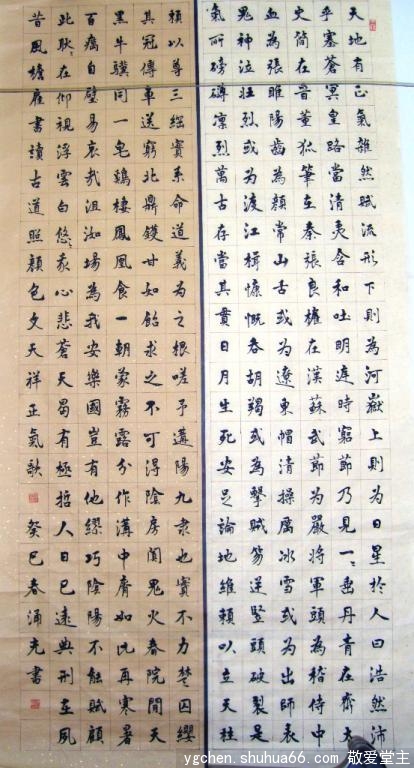 天地有正氣雜然賦流形下則為河嶽上則為日星於人曰浩然沛
乎塞蒼冥皇路當清夷含和吐明庭時窮節乃見一々垂丹青在齊太
史簡在晉董狐筆在秦張良椎在漢蘇武節為嚴將軍頭為嵇侍中
血為張睢陽齒為顏常山舌或為遼東帽清操厲冰雪或為出師表
鬼神泣壯烈或為渡江楫慷慨吞胡羯或為擊賊笏逆豎頭破裂是
氣所磅礴凜烈萬古存當其貫日月生死安足論地維賴以立天柱
賴以尊三綱實系命道義為之根嗟予遘陽九隸也實不力楚囚纓
其冠傳車送窮北鼎鑊甘如飴求之不可得陰房闃鬼火春院閟天
黑牛驥同一皂鷄棲鳳凰食一朝蒙霧露分作溝中瘠如此再寒暑
百癘自辟易哀哉沮洳場為我安樂國豈有他繆巧陰陽不能賊顧
此耿々在仰視浮雲白悠々我心悲蒼天曷有極哲人日已遠典刑在夙
昔風檐展書讀古道照顏色文天祥正氣歌 癸巳春涌克書
ygchen.shuhua66.com 敬爱堂主